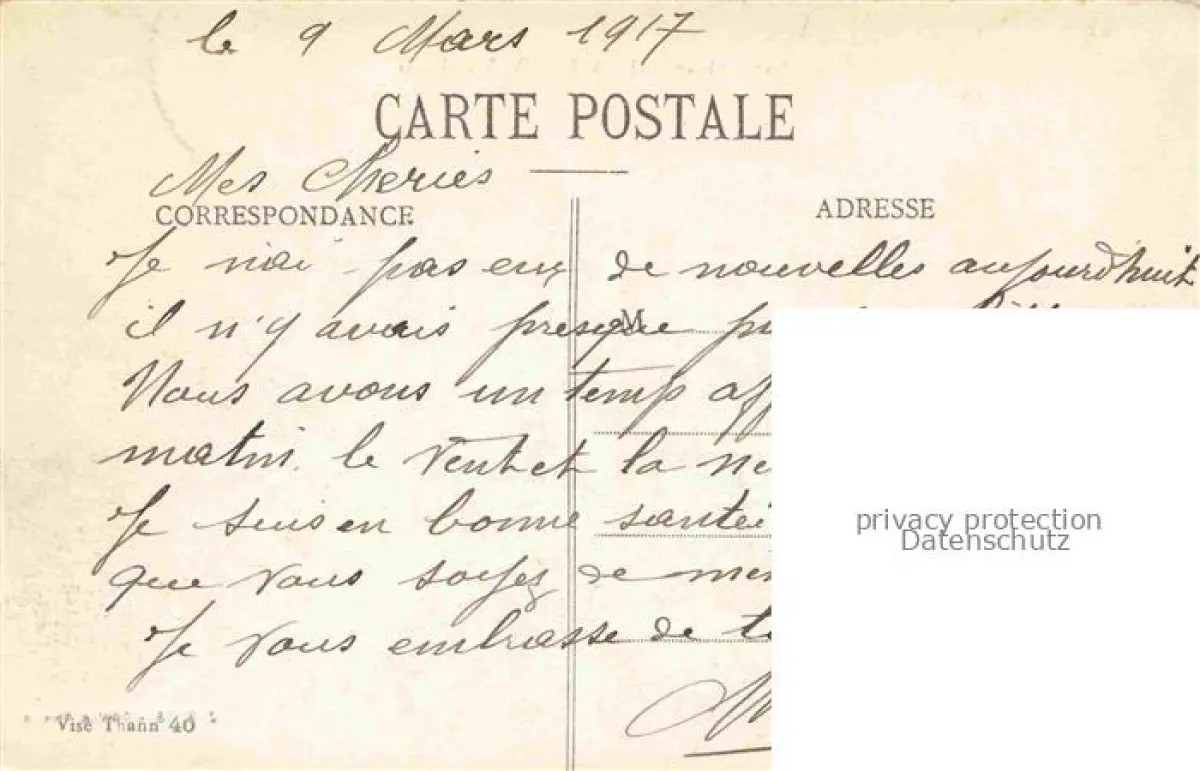 le 9 Mars 1917
CARTE POSTALE
Mes Cheries
CORRESPONDANCE
ADRESSE
Je n'ai pas eux de nouvelles aujourdhuit
il n'y avais presque
M
Nous avons un temp aff
matin. le vent et la ne
Je suis en bonne santée
que vous soyez de mem
Je vous embrasse de to
Visé Thann 40
privacy protection
Datenschutz